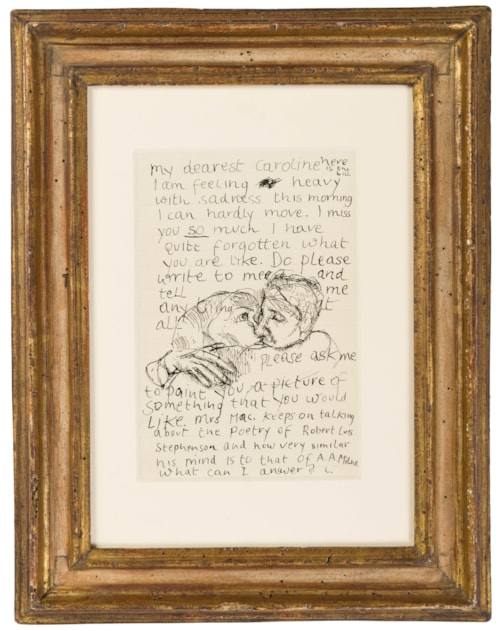 my dearest Caroline here
is one
bill
I am feeling heavy
with sadness this morning
I can hardly move. I miss
you so much I have
quite forgotten what
you are like. Do please
write to me and
tell me
any thing at
all
please ask me
to paint you a picture of
something that you would
like. Mrs Mac. keeps on talking
about the Poetry of Robert Luis
Stephenson and how very similar
his mind is to that of A A Milne
what can I answer? L.